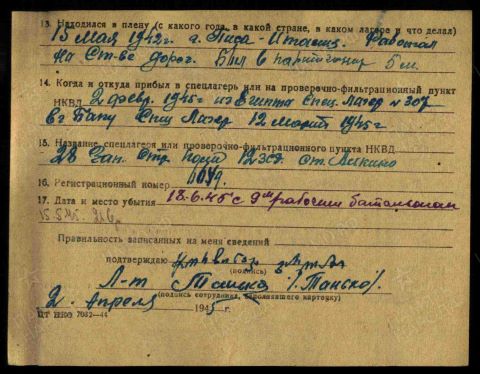 13. Находился в плену (с какого года, в какой стране, в каком лагере и что делал)
15 Мая 1942г. г. Пиза-Италия. Работал
на Ст-ве дорог. Был в партизанах 5 м.
14. Когда и откуда прибыл в спецлагерь или на проверочно-фильтрационный пункт
НКВД 2 февр. 1945г из Египта Спец. Лагер № 307
в г Баку Спец Лагер 12 Марта 1945г
15. Название спецлагеря или проверочно-фильтрационного пункта НКВД
28 Зап. Стр. 12 зсд. ст.
16. Регистрационный номер
17. Дата и место убытия 18-6.45 с 9 рабочим батальоном
15.5.45.
Правильность записанных на меня сведений
подтверждаю
(подпись)
Л-т /Танско/.
(подпись сотрудника, заполнявшего карточку)
2. Апреля 1945 г.
ЦТ НКО 7082—44